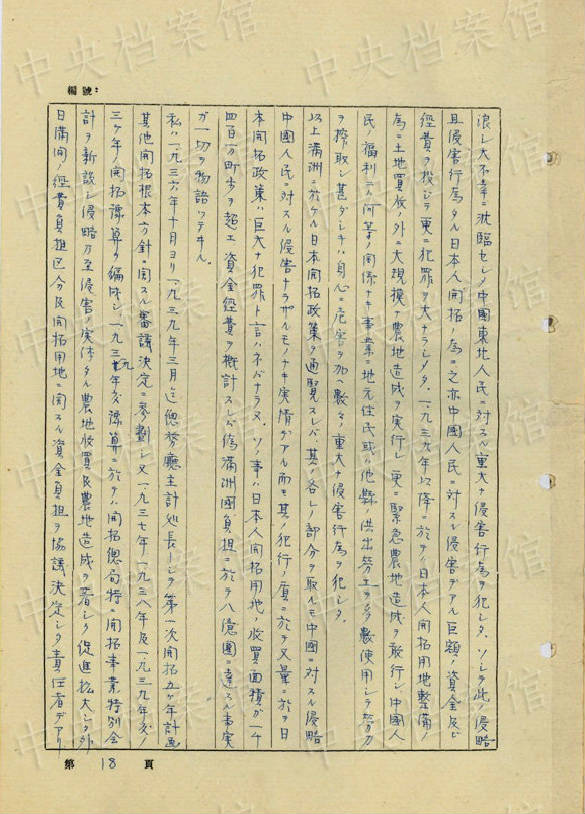 編號：
浪シ大不幸ニ沈臨セシメ中國東北人民ニ対スル重大ナ侵害行為ヲ犯シタ。ソシテ此ノ侵略
且侵害行為タル日本人開拓ノ為ニ之亦中國人民ニ対スル侵害デアル巨額ノ資金及ビ
經費ヲ投ジテ更ニ犯罪ヲ大ナラシメタ。一九三九年以降ニ於テハ日本人開拓用地整備ノ
為ニ土地買收ノ外ニ大規模ナ農地造成ヲ実行シ更ニ緊急農地造成ヲ敢行シ中國人
民ノ福利ニハ何等ノ関係ナキ事業ニ地元住民或ハ他縣ノ供出勞工ヲ多數使用シテ勞力
ヲ搾取シ甚ダシキハ身心ニ危害ヲ加ヘ數々ノ重大ナ侵害行為ヲ犯シタ。
以上満洲ニ於ケル日本開拓政策ヲ通覧スレバ、其ノ各レノ部分ヲ取ルモ中國ニ対スル侵略
中國人民ニ対スル侵害ナラザルモノナキ実情ガアル而モ其ノ犯行ノ質ニ於テ又量ニ於テ日
本開拓政策ハ巨大ナ犯罪ト言ハネバナラヌ。ソノ事ハ日本人開拓用地ノ收買面積ガ一千
四百万町歩ヲ超エ資金經費ヲ概計スレバ偽満洲國負担ニ於テ八億圓ニ達スル事実
ガ一切ヲ物語ツテヰル。
私ハ一九三六年十月ヨリ一九三九年三月迄總務廳主計処長トシテ第一次開拓五ケ年計画
其他開拓根本方針ニ関スル審議決定ニ参劃シ又一九三七年一九三八年及一九三九年度ノ
三ケ年ノ開拓豫算ヲ編成シ一九三九年度豫算ニ於テハ開拓總局特ニ開拓事業特別会
計ヲ新設シ侵略乃至侵害ノ実体タル農地收買及農地造成ヲ著シク促進拡大シタ外
日満間ノ經費負担区分及開拓用地ニ関スル資金負担ヲ協議決定シタ責任者デアリ
第 18 頁